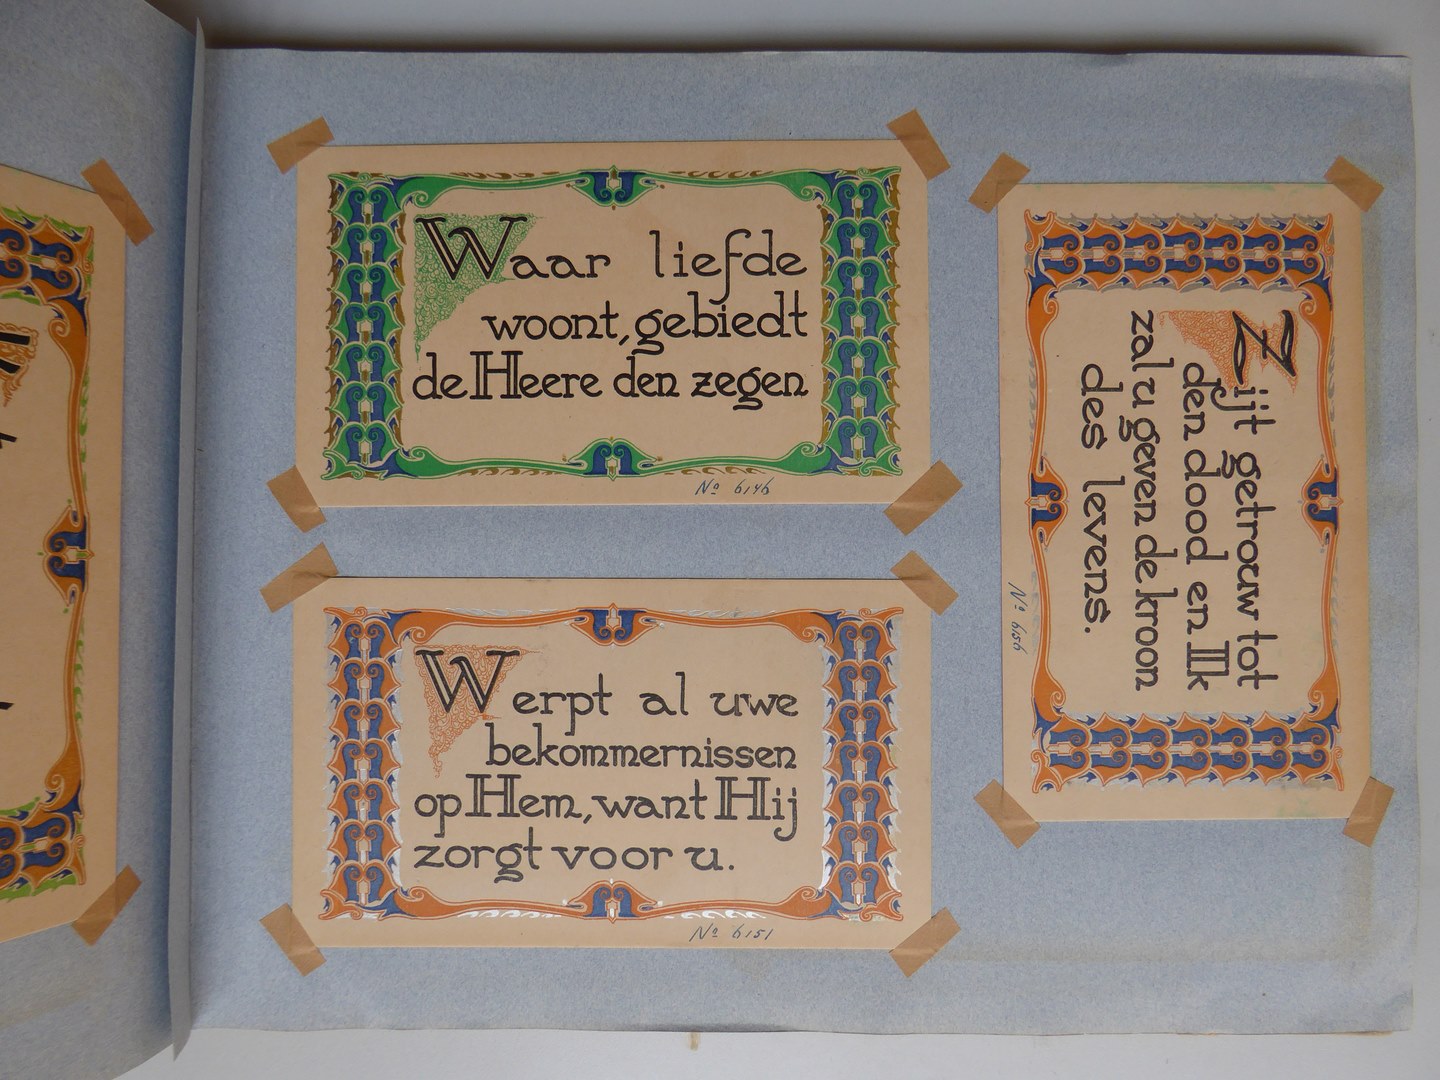 Waar liefde
woont, gebiedt
de Heere den zegen
No 6146
Werpt al uwe
bekommernissen
op Hem, want Hij
zorgt voor u.
No 6151
Zijt getrouw tot
den dood en Ik
zal u geven de kroon
des levens.
No 6156